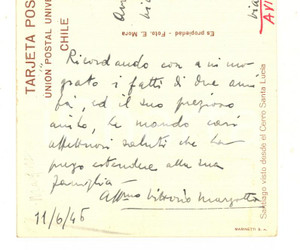 TARJETA POS
UNION POSTAL UNIVER
CHILE
Es propiedad - Foto. E. Mora
Ricordando con animo
grato i fatti di due anni
fa, ed il suo prezioso
aiuto, le mando cari
affettuosi saluti che la
prego estendere alla sua
famiglia
Aff.mo Vittorio Margotta
11/6/46
Santiago visto desde el Cerro Santa Lucía